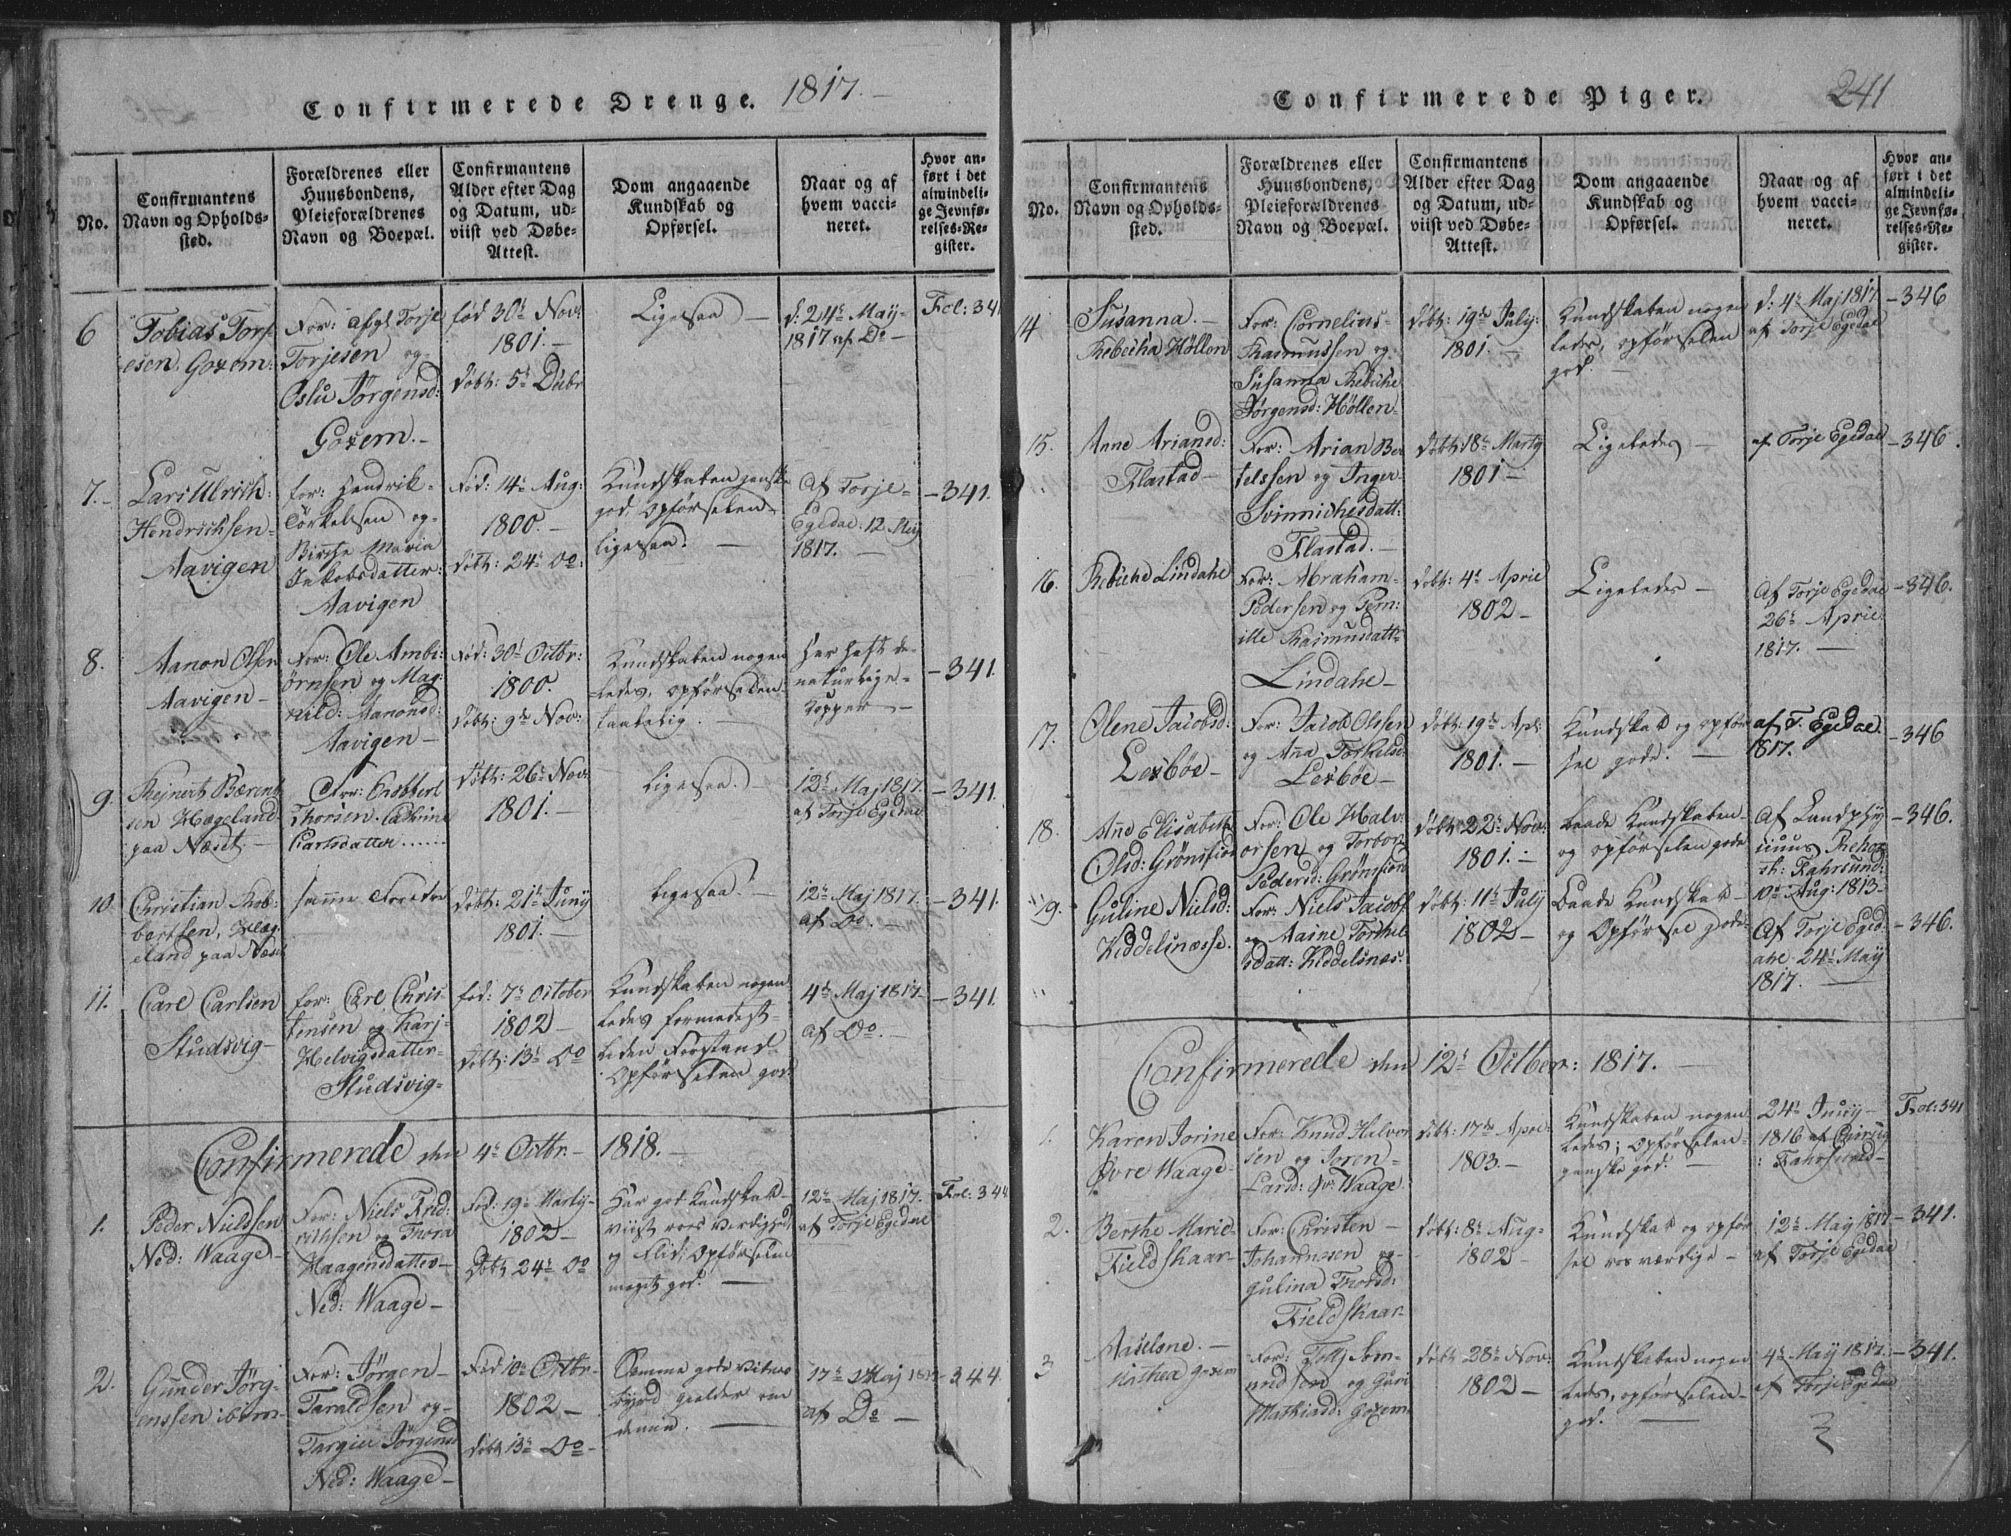 Confirmerede Drenge. 1817.
No.
Confirmantens
Navn og Opholds-
sted.
Forældrenes eller
Huusbondens,
Pleieforældrenes
Navn og Boepæl.
Confirmantens
Alder efter Dag
og Datum, ud-
viist ved Døbe-
Attest.
Dom angaaende
Kundskab og
Opførsel.
Naar og af
hvem vacci-
neret.
Hvor an-
ført i det
almindeli-
ge Jevnfø-
relses-Re-
gister.
6
Tobias Torj
esen. Goxem.
For: afgl Torje
Torjesen og
Oslu Jørgensd:
Goxem.-
fød 30t Nov:
1801.-
døbt: 5t Dcbr
Ligesaa -
d. 24t May-
1817 af Do -
Fol: 341
7.-
Lars Ulrich
Hendrichsen-
Aavigen
for: Hendrik-
Tørkelsen og-
Birthe Maria
Jakobsdatter:
Aavigen
Fød: 14t Aug:
1800.-
døbt: 24t do:
Kundskaben ganske
god, Opførselen
ligesaa. -
Af Torje-
Egedal: 12 May
1817. -
-341.
8.
Aanon Olsen
Aavigen-
For: Ole Ambi:
örnsen og Mag:
nild: Aanonsd:
Aavigen-
Fød: 30t Octbr:
1800.
døbt: 9de Nov:
Kundskaben nogen
ledes, opførselen
taalelig. -
har haft de
naturlige-
Kopper -
-341.
9.
Rejnert Bærent
sen Hægeland
paa Næset -
For: Robbert
Thorsen. Cathrine
Carlsdatter......
døbt: 26t Nov:
1801.-
ligesaa. -
12t Maj 1817.
af Torje Egedal
-341.
10.
Christian Rob-
bertsen, Hæg:
eland paa Næset
samme Foreldre
døbt: 21t Juny
1801.-
ligesaa. -
12t Maj 1817.
af Do. -
-341.
11.
Carl Carlsen
Studsvig-
for: Carl Chris
tensen og Karj-
Helvigsdatter-
Studsvig-
fød: 7t October
1802-
døbt: 13t Do
Kundskaben nogen
ledes formedelst
liden Forstand-
Opførselen god.
4t Maj 1817.
af Do. -
-341.
Confirmerede den 4t Octbr- 1818.-
1.
Peder Nielssen
Ned: Waage-
For: Niels Frid:
richsen og Thora
Haagensdatter-
Ned: Waage-
Fød: 19t Marty-
1802-
Døbt 24t Do
Har god Kundskab-
og Flid: Opførselen
meget god. -
12t Maj 1817.
af Torje Egedal
Fol: 344
2.
Gunder Jørg
enssen ibm-
For: Jørgen-
Taraldsen og-
Targier Jørgensd
Ned: Waage-
Fød: 10t Octbr-
1802-
døbt 13t Do-
Samme gode Vidnes
byrd gielder om
denne. -
17t Maj 1817
af Do -
-344.
Confirmerede Piger. 241
No.
Confirmantens
Navn og Opholds-
sted.
Forældrenes eller
Huusbondens,
Pleieforældrenes
Navn og Boepæl.
Confirmantens
Alder efter Dag
og Datum, ud-
viist ved Døbe-
Attest.
Dom angaaende
Kundskab og
Opførsel.
Naar og af
hvem vacci-
neret.
Hvor an-
ført i det
almindeli-
ge Jevnfø-
relses-Re-
gister.
14
Susanna.-
Rebecha Höllen
For: Cornelius-
Rasmussen og
Susanna Rebeche
Jørgensd: Höllen-
døbt: 19de July:
1801.-
Kundskaben nogen
ledes, opførselen
god. -
d: 4t Maj 1817.
af Torje Egedal
-346
15.
Anne Ariansd:
Flastad-
For: Arian Ber
telssen og Inger-
Svinnichesdatt:
Flastad.-
døbt 18t Marty
1801-
Ligeledes -
af Torje Egedal
-346.
16.
Rebeche Lindahl
For: Abraham-
Pedersen og Pern:
ille Rasmusdatt:
Lindahl-
døbt: 4t April
1802-
Ligeledes -
Af Torje Egedal
26t April
1817. -
-346.
17.
Olene Jacobsd:
Lexbøe-
For: Jacob Olssen
og Aña Torkelsd:
Lexbøe-
døbt: 19de Apl:
1801.-
Kundskab og opfør
sel gode. -
af T. Egedal
1817.
-346
18.
Añe Elisabeth
Olsd: Grønsfiord
For: Ole Halv:
orsen og Torbor
Pedersd: Grønsfiord
døbt 22t Nov:
1801.-
baade Kundskaben
og opførselen gode
Af Landphy
sicuus
Fahrsund:
10t Aug: 1813-
-346.
19.
Guline Nielsd:
Keddelsnæsse.
For: Niels Jacobs
og Aaine Torkel
sdatt: Keddelsnæs:
døbt: 11t July
1802-
Baade Kundskab-
og Opførsel gode-
Af Torje Eged
ahl 24t May
1817. -
-346.
Confirmerede den 12t Octbr: 1817.
1.
Karen Jorine
Øvre Waage-
For: Knud Halvor
sen og Joren-
Larsd: Øv: Waage
døbt: 17de April
1803.-
Kundskaben nogen
ledes; Opførselen-
ganske god. -
24t July-
1816 af Chirurg
: Fahrsund-
Fol: 341
2.
Berthe Marie-
Fieldskaar-
For: Christen-
Johannesen og-
Gulina Thorsd:
Fieldskaar-
døbt: 8t Aug-
1802-
Kundskab og opfør
sel rosværdige -
12t May 1817
af Torje Egedal
-341.
3
Aaselene.-
Mathea Goxem
For: Tollj Som-
mrid sen og Guri
Mathiasd: Goxem-
døbt 28t Nov:
1802-
Kundskaben nogen
ledes, opførselen-
god. -
4t May 1817.
af Torje Egedal
-341.